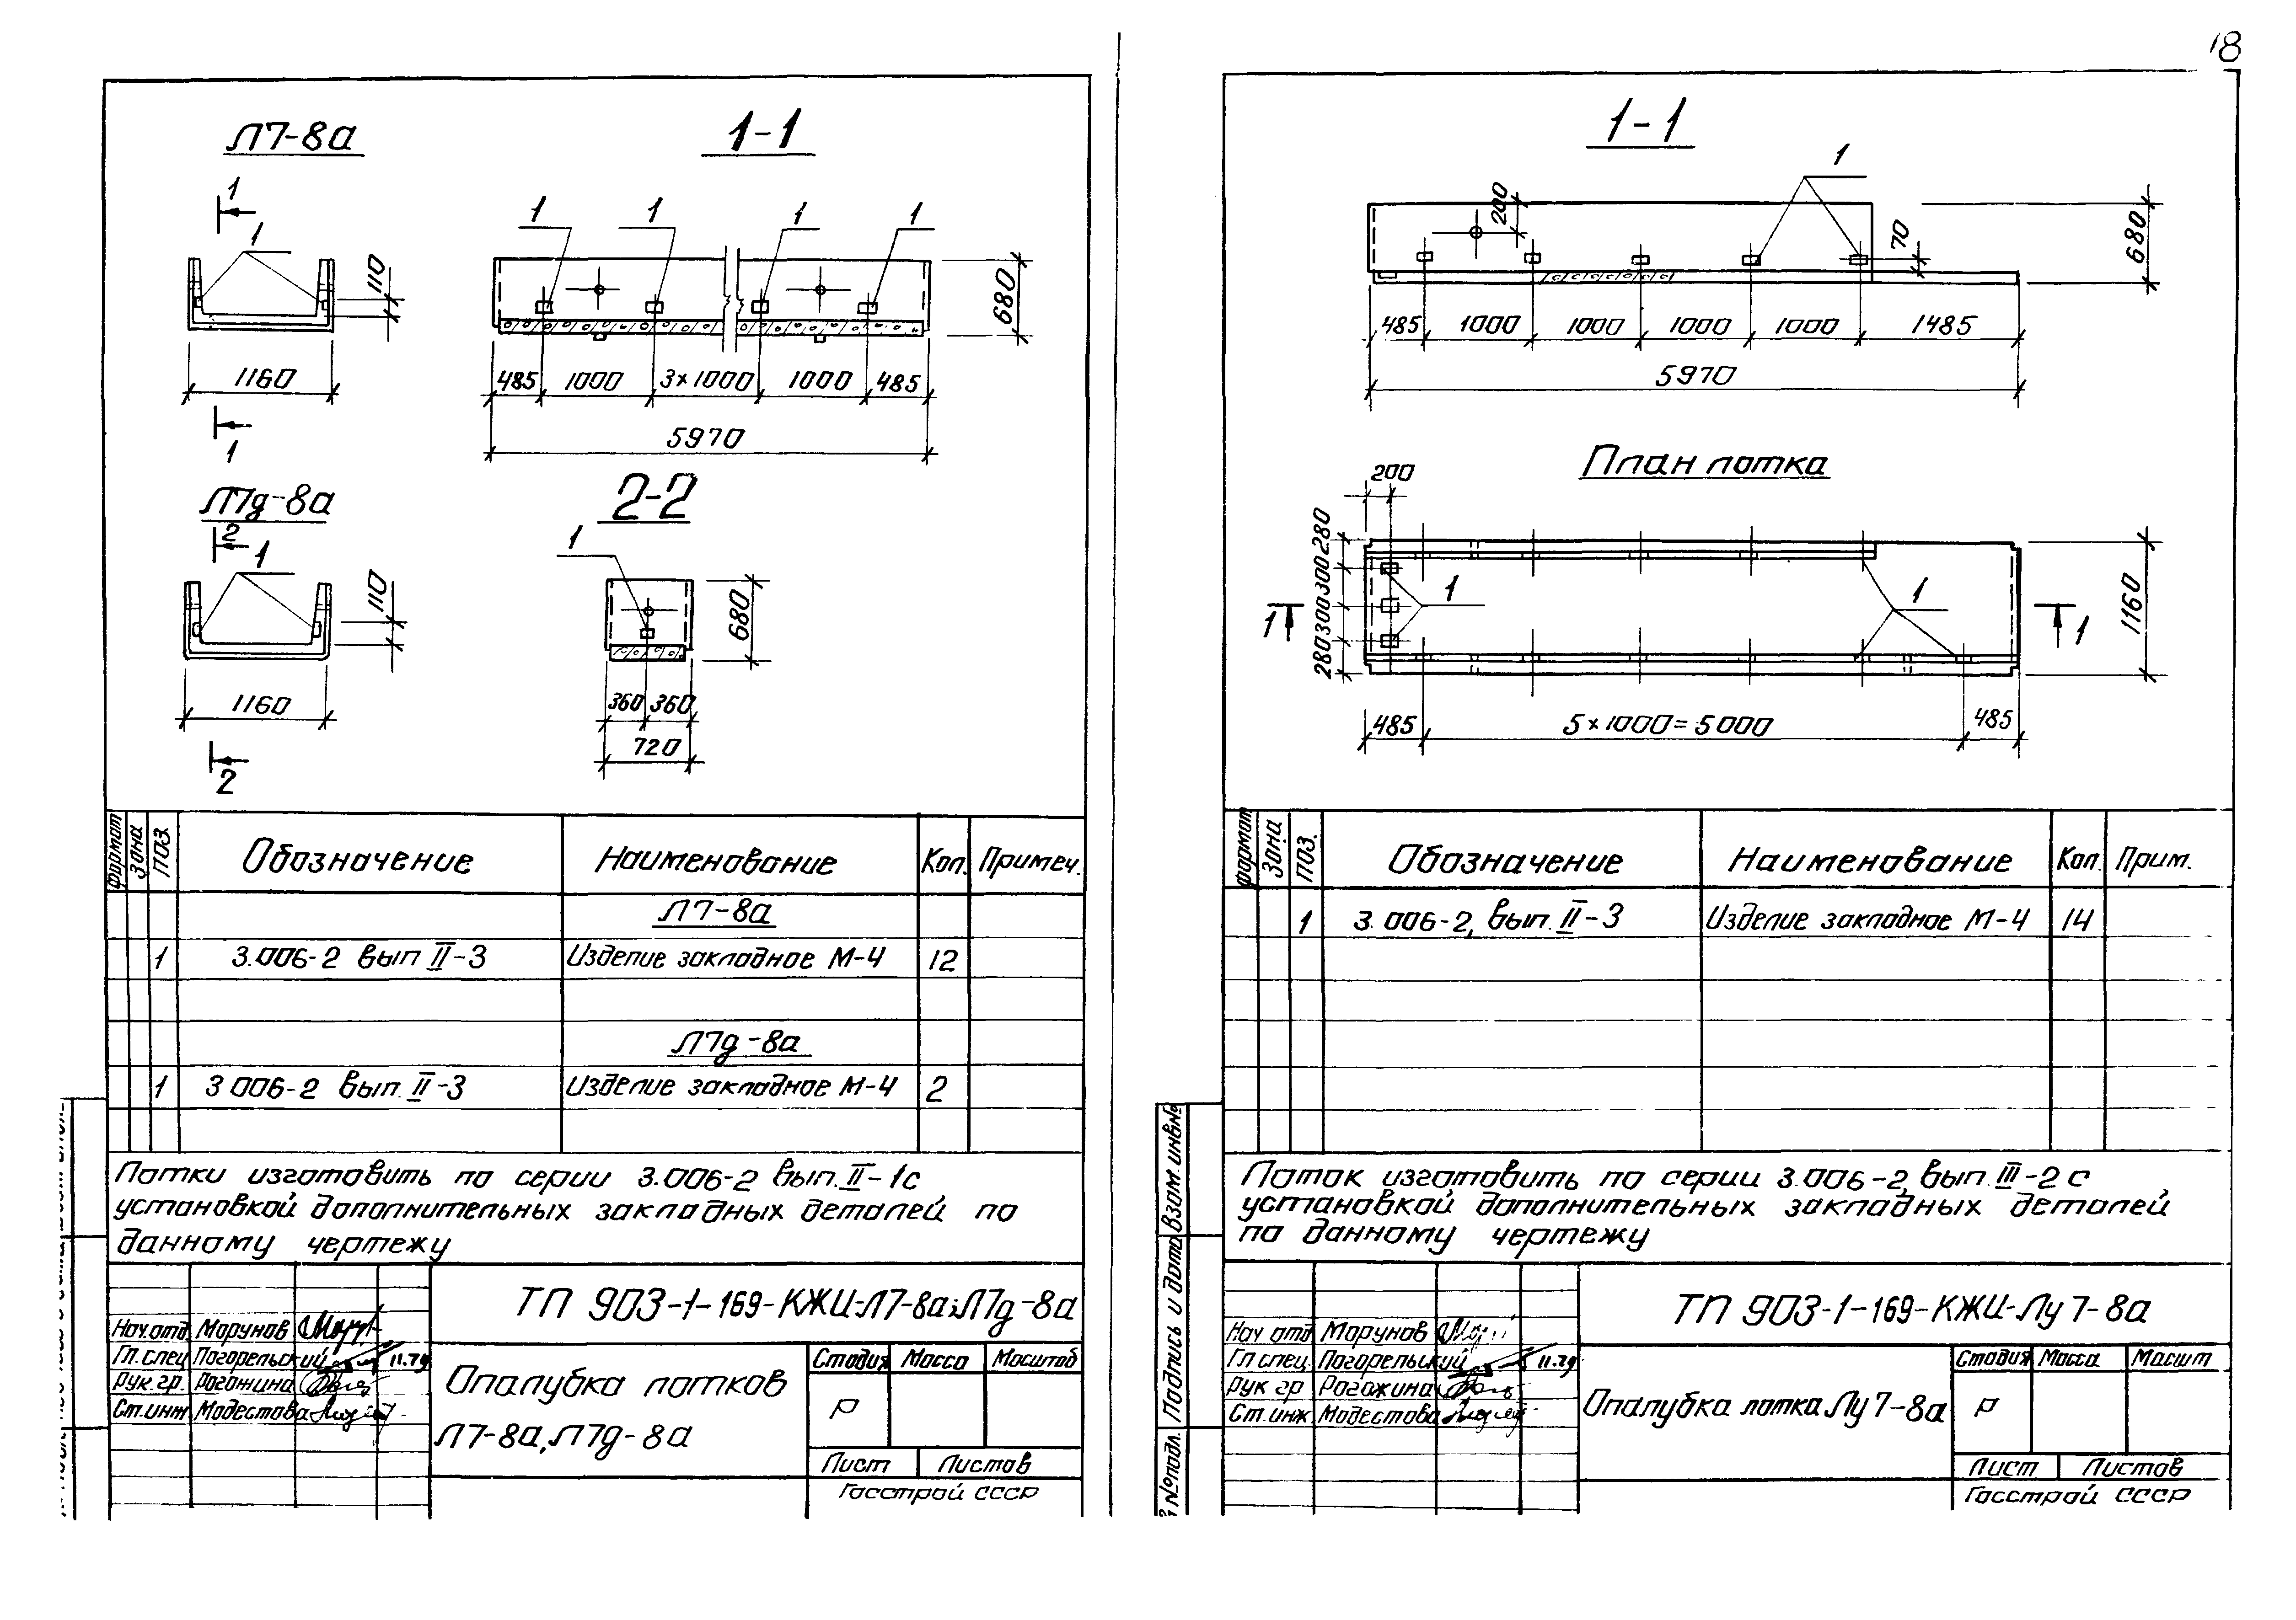 18
Л7-8а
1-1
1
1
110
1160
1
1
1
1
1
680
485
1000
3×1000
1000
485
5970
Л7д-8а
2-2
2
1
110
1160
2
1
680
360
360
720
формат
Зона
Поз.
Обозначение
Наименование
Кол.
Примеч.
Л7-8а
1
3.006-2 вып II-3
Изделие закладное М-4
12
Л7д-8а
1
3.006-2 вып. II-3
Изделие закладное М-4
2
Лотки изготовить по серии 3.006-2 вып. II-1 с
установкой дополнительных закладных деталей по
данному чертежу
ТП 903-1-169-КЖИ-Л7-8а;Л7д-8а
Нач.отд. Моруков
Гл.спец. Погорельский 11.79
Рук.гр. Рогожина
Ст.инж. Модестова
Опалубка лотков
Л7-8а, Л7д-8а
Стадия
Масса
Масштаб
Р
Лист
Листов
Госстрой СССР
1-1
1
200
70
680
485
1000
1000
1000
1000
1485
5970
План лотка
200
280
300
300
280
1
1
1
1
1160
485
5×1000=5000
485
формат
Зона
Поз.
Обозначение
Наименование
Кол.
Прим.
1
3.006-2, вып. II-3
Изделие закладное М-4
14
Лоток изготовить по серии 3.006-2, вып. III-2 с
установкой дополнительных закладных деталей
по данному чертежу
ТП 903-1-169-КЖИ-Лу7-8а
Нач отд. Моруков
Гл спец. Погорельский 11.79.
Рук гр Рогожина
Ст. инж. Модестова
Опалубка лотка Лу7-8а
Стадия
Масса
Масшт
Р
Лист
Листов
Госстрой СССР
Взам. инв.№
Подпись и дата
№подл.